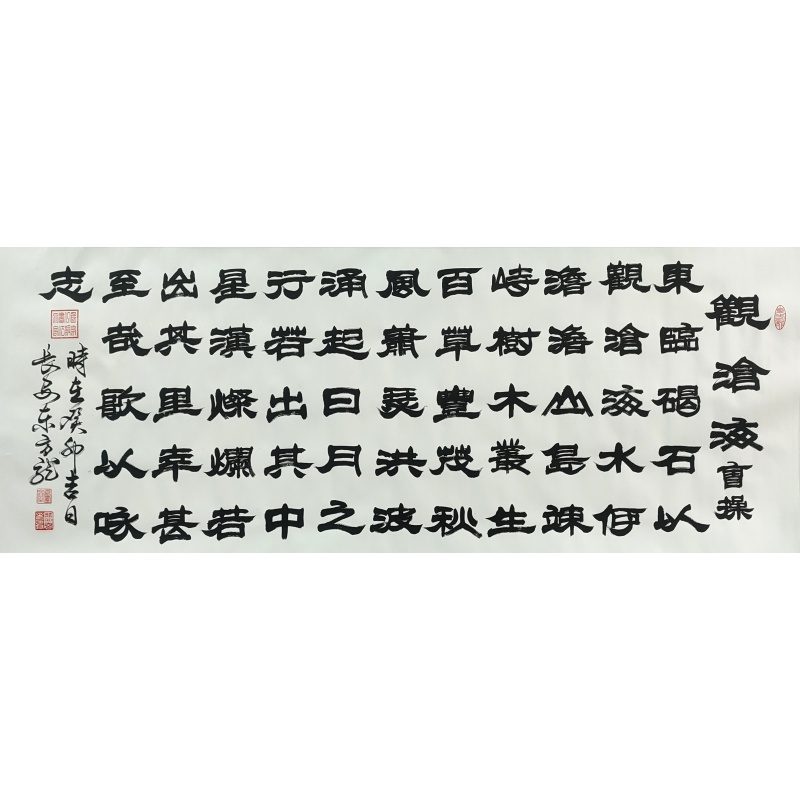 觀滄海 曹操
東臨碣石以
觀滄海水何
澹澹山島竦
峙樹木叢生
百草豐茂秋
風蕭瑟洪波
涌起日月之
行若出其中
星漢燦爛若
出其里幸甚
至哉歌以咏
志
時在癸卯吉日
長安东方龙